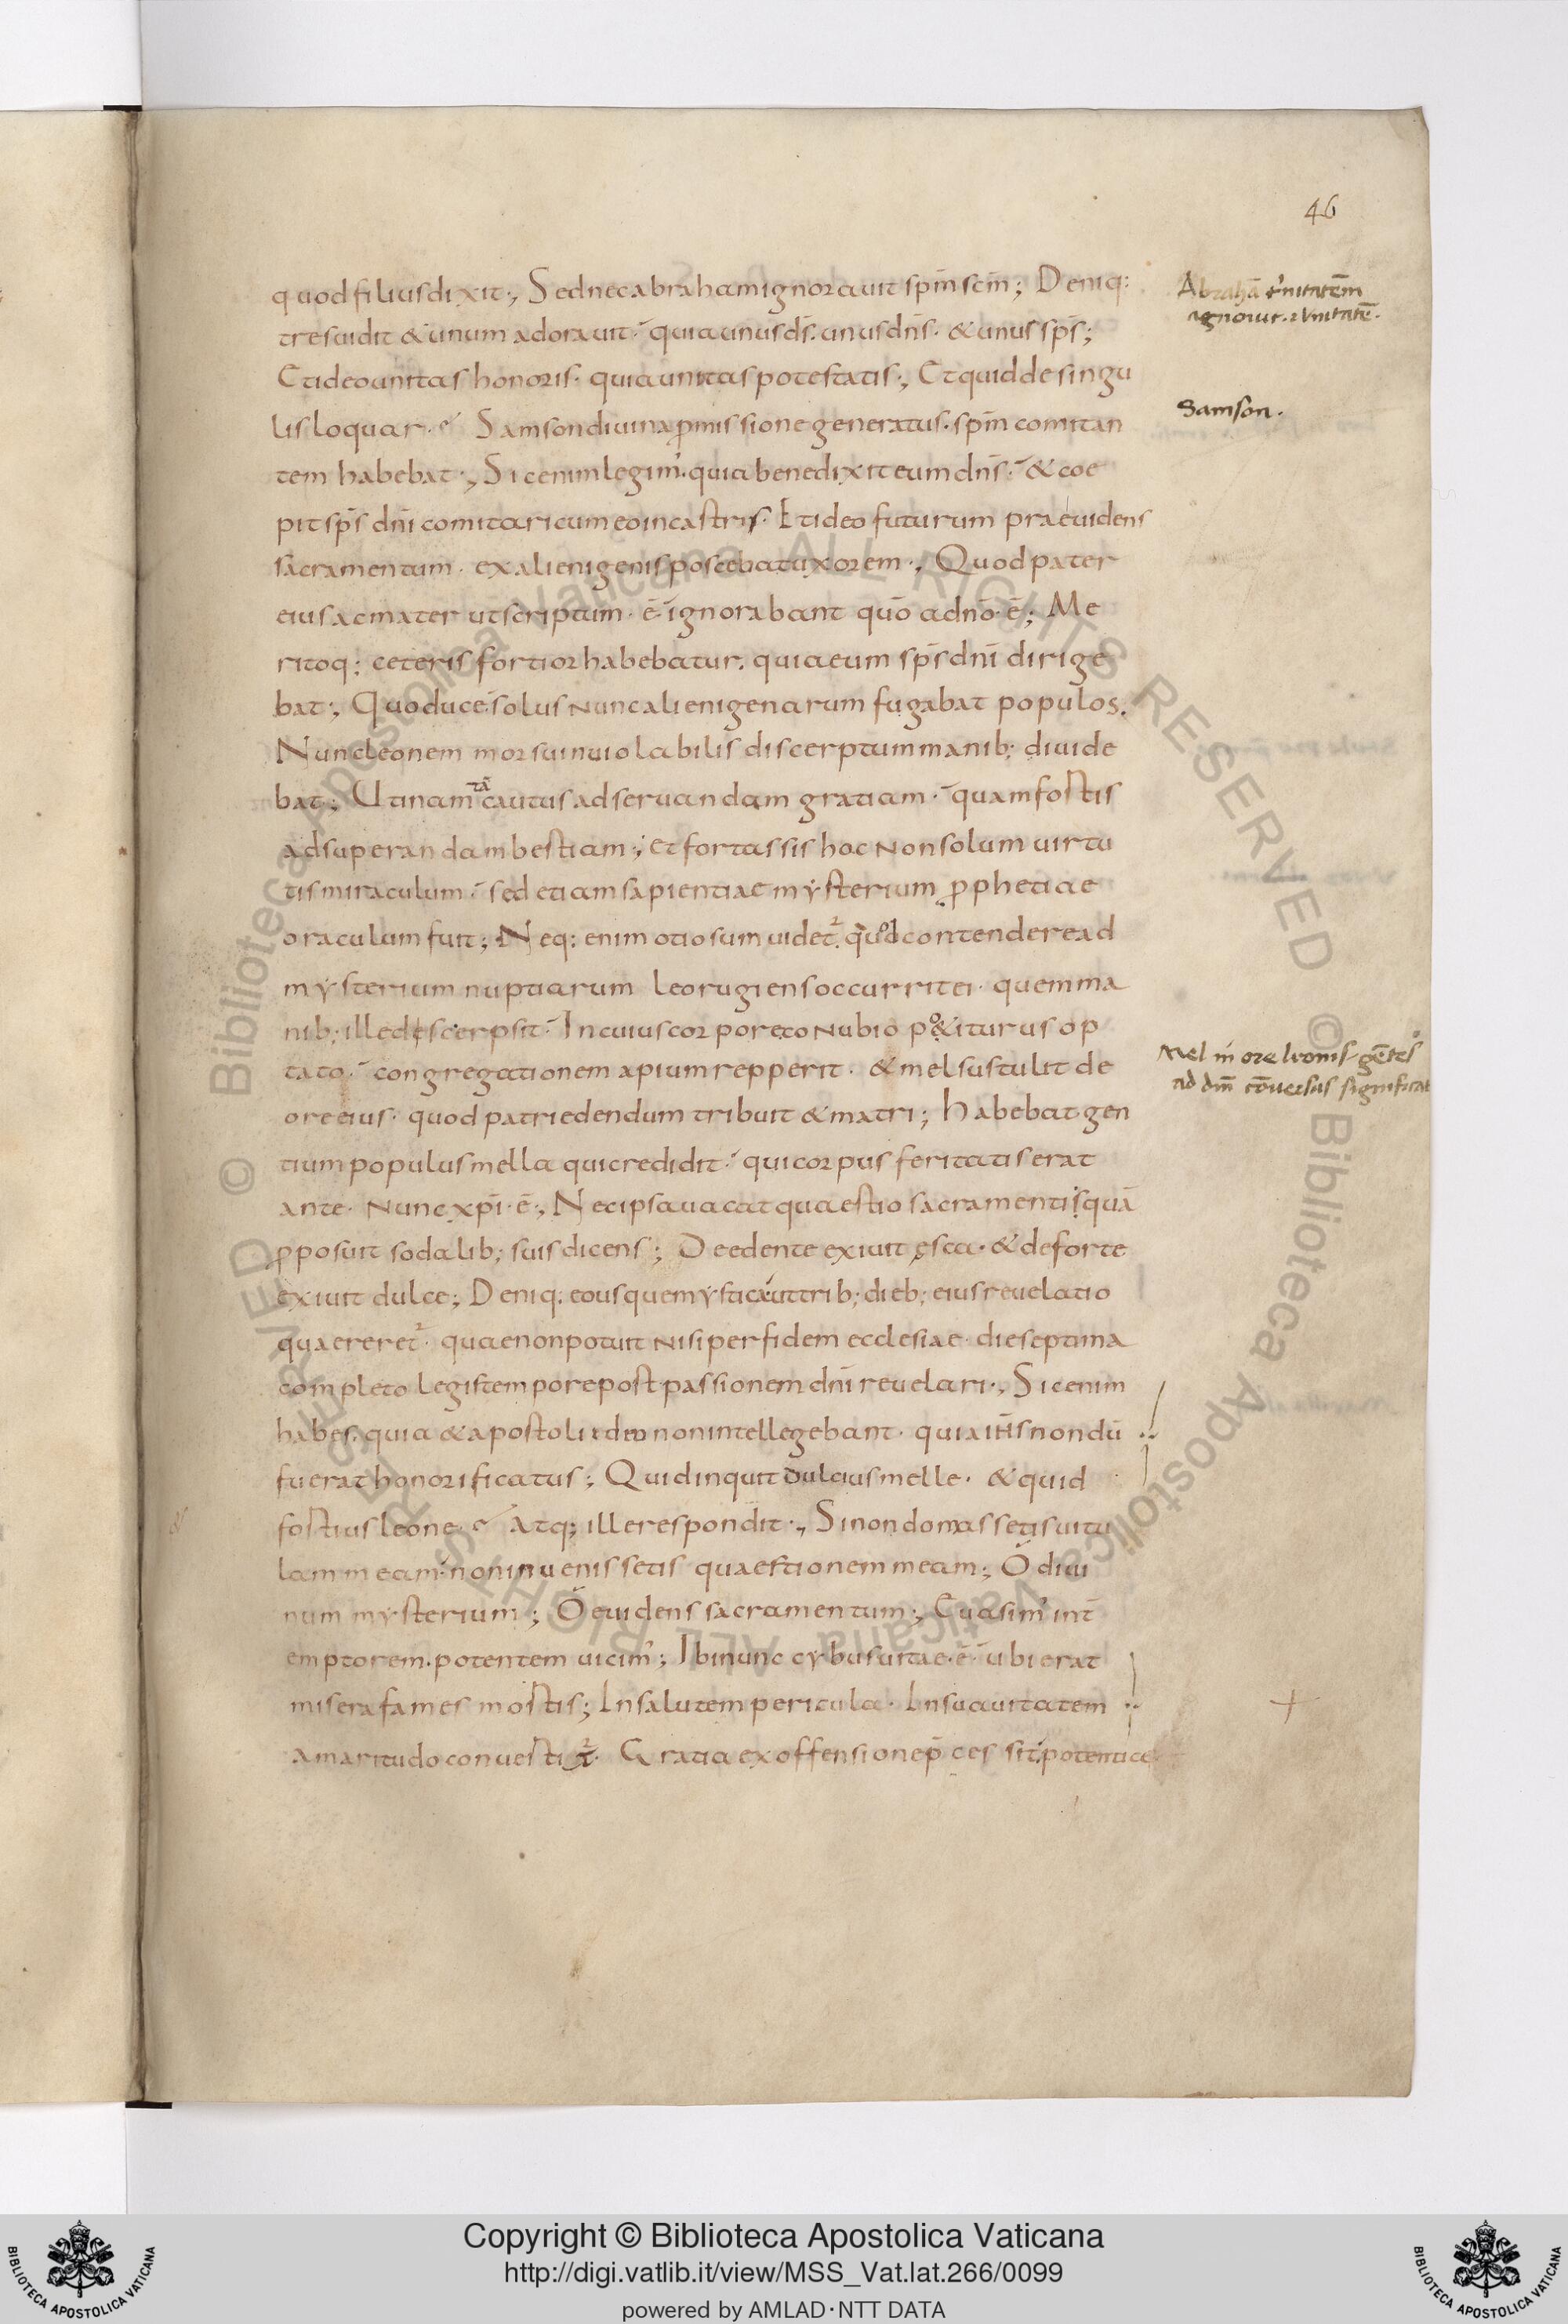 46
quod filius dixit ·, Sed nec abraham ignorauit sp̄m sc̄m ; Deniq:
tres uidit & unum adorauit · quia unus d̄s. unus dn̄s. & unus sp̄s ;
Et ideo unitas honoris · quia unitas potestatis ·, Et quid de singu
lis loquar · Samson diuina p̱missione generatus · sp̄m comitan
tem habebat ·, Sic enim legim' · quia benedixit eum dn̄s · & coe
pit sp̄s dn̄i comitari cum eo in castris · Et ideo futurum praeuidens
sacramentum · ex alienigenis poscebat uxorem ·, Quod pater
eius ac mater ut scriptum · ē ignorabant quō a dn̄o · ē ; Me
ritoq: ceteris fortior habebatur. quia eum sp̄s dn̄i dirige
bat ·, Quo duce solus nunc alienigenarum fugabat populos.
Nunc leonem morsu inuiolabilis discerptum manib; diuide
bat ; Utinam tā cautus ad seruandam gratiam · quam fortis
ad superandam bestiam ·, et fortassis hoc non solum uirtu
tis miraculum · sed etiam sapientiae mysterium p̱phetiae
oraculum fuit ; Neq: enim otiosum uidet² quod contendere ad
mysterium nuptiarum leo rugiens occurrit ei · quem ma
nib; ille descerpsit · In cuius corpore conubio po&iturus op
tato · congregationem apium repperit · & mel sustulit de
ore eius · quod patri edendum tribuit & matri ; Habebat gen
tium populus mella qui credidit · qui corpus feritatis erat
ante · nunc xp̄i · ē ·, Nec ipsa uacat quaestio sacramentis quā
p̱posuit sodalib; suis dicens ; De edente exiuit esca · & de forte
exiuit dulce ; Deniq: eo usque mystica ut trib; dieb; eius reuelatio
quaereret² · quae non potuit nisi per fidem ecclesiae · die septima
completo legis tempore post passionem dn̄i reuelari ·, Sic enim
habes. quia & apostoli ideo non intellegebant · quia ih̄s nondū
fuerat honorificatus ; Quid inquit dulcius melle · & quid
fortius leone · Atq; ille respondit ·, Si non domassetis uitu
lam meam · non inuenissetis quaestionem meam ·, O diui
num mysterium ; O euidens sacramentum ·, Euasim' int̄
emptorem. potentem uicim' ; Ibi nunc cybus uitae · ē · ubi erat
misera fames mortis ; In salutem pericula · In suauitatem
amaritudo conuertit² · Gratia ex offensione p̱ces sit potentiae
Abrahā t'nitatem
agnouit. & vnitatē.
Samson.
Mel in ore leonis gētes
ad dm̄ cōuersus significat
© Biblioteca Apostolica Vaticana ALL RIGHTS RESERVED © Biblioteca Apostolica Vaticana ALL RIGHTS RESERVED
BIBLIOTECA APOSTOLICA VATICANA
Copyright © Biblioteca Apostolica Vaticana
http://digi.vatlib.it/view/MSS_Vat.lat.266/0099
powered by AMLAD·NTT DATA
BIBLIOTECA APOSTOLICA VATICANA